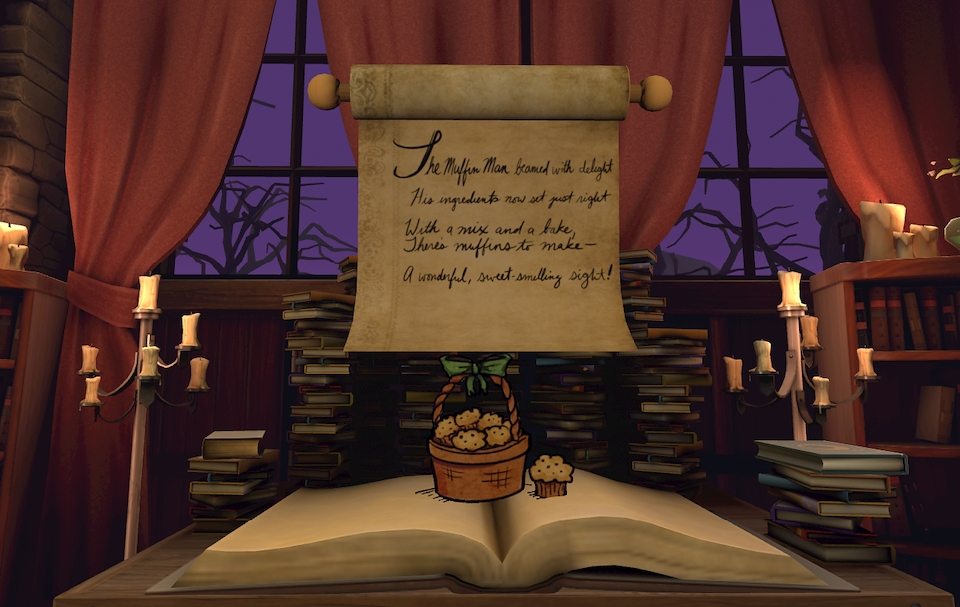 The Muffin Man beamed with delight
His ingredients now set just right
With a mix and a bake,
There's muffins to make—
A wonderful, sweet-smelling sight!